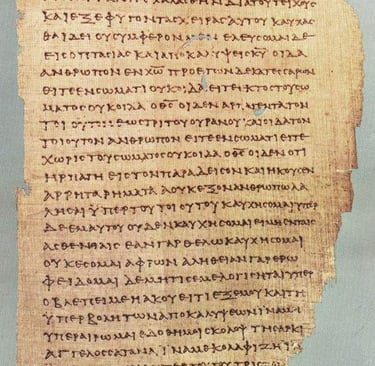 ΚΑΙ ΕΞΕΦΥΓΟΝ ΤΑΣ ΧΕΙΡΑΣ ΑΥΤΟΥ ΚΑΥΧΑΣ
ΘΑΙ ΔΕΙ ΟΥ ΣΥΜΦΕΡΟΝ ΜΕΝ ΕΛΕΥΣΟΜΑΙ ΔΕ
ΕΙΣ ΟΠΤΑΣΙΑΣ ΚΑΙ ΑΠΟΚΑΛΥΨΕΙΣ ΚΥ ΟΙΔΑ
ΑΝΘΡΩΠΟΝ ΕΝ ΧΩ ΠΡΟ ΕΤΩΝ ΔΕΚΑΤΕΣΣΑΡΩΝ
ΕΙΤΕ ΕΝ ΣΩΜΑΤΙ ΟΥΚ ΟΙΔΑ ΕΙΤΕ ΕΚΤΟΣ ΤΟΥ ΣΩ
ΜΑΤΟΣ ΟΥΚ ΟΙΔΑ Ο ΘΣ ΟΙΔΕΝ ΑΡΠΑΓΕΝΤΑ ΤΟΝ
ΤΟΙΟΥΤΟΝ ΕΩΣ ΤΡΙΤΟΥ ΟΥΡΑΝΟΥ ΚΑΙ ΟΙΔΑ ΤΟΝ
ΤΟΙΟΥΤΟΝ ΑΝΘΡΩΠΟΝ ΕΙΤΕ ΕΝ ΣΩΜΑΤΙ ΕΙΤΕ
ΧΩΡΙΣ ΤΟΥ ΣΩΜΑΤΟΣ ΟΥΚ ΟΙΔΑ Ο ΘΣ ΟΙΔΕΝ ΟΤΙ
ΗΡΠΑΓΗ ΕΙΣ ΤΟΝ ΠΑΡΑΔΕΙΣΟΝ ΚΑΙ ΗΚΟΥΣΕΝ
ΑΡΡΗΤΑ ΡΗΜΑΤΑ Α ΟΥΚ ΕΞΟΝ ΑΝΘΡΩΠΩ ΛΑ
ΛΗΣΑΙ ΫΠΕΡ ΤΟΥ ΤΟΙΟΥΤΟΥ ΚΑΥΧΗΣΟΜΑΙ ΥΠΕΡ
ΔΕ ΕΜΑΥΤΟΥ ΟΥΔΕΝ ΚΑΥΧΗΣΟΜΑΙ ΕΙ ΜΗ ΕΝ ΤΑΙΣ
ΑΣΘΕΝΙΑΙΣ ΕΑΝ ΓΑΡ ΘΕΛΩ ΚΑΥΧΗΣΟΜΑΙ
ΟΥΚ ΕΣΟΜΑΙ ΑΦΡΩΝ ΑΛΗΘΕΙΑΝ ΓΑΡ ΕΡΩ
ΦΕΙΔΟΜΑΙ ΔΕ ΜΗ ΤΙΣ ΕΜΕ ΛΟΓΙΣΗΤΑΙ ΥΠΕΡ
Ο ΒΛΕΠΕΙ ΜΕ Η ΑΚΟΥΕΙ ΤΙ ΕΞ ΕΜΟΥ ΚΑΙ ΤΗ
ΫΠΕΡΒΟΛΗ ΤΩΝ ΑΠΟΚΑΛΥΨΕΩΝ ΙΝΑ ΜΗ
ΥΠΕΡΑΙΡΩΜΑΙ ΕΔΟΘΗ ΜΟΙ ΣΚΟΛΟΨ ΤΗ ΣΑΡΚΙ
ΑΓΓΕΛΟΣ ΣΑΤΑΝΑ ΙΝΑ ΜΕ ΚΟΛΑΦΙΖΗ